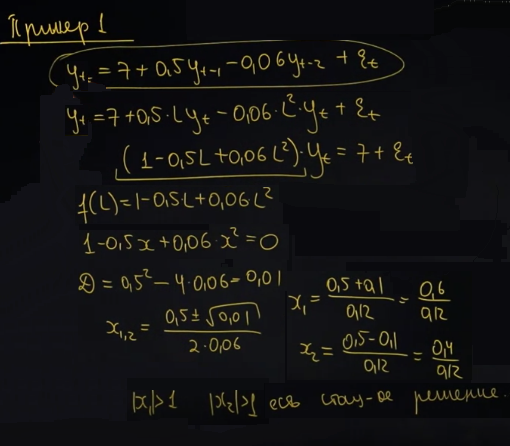 Пример 1
y_t = 7 + 0,5y_{t-1} - 0,06y_{t-2} + ε_t
y_t = 7 + 0,5·Ly_t - 0,06·L²·y_t + ε_t
(1 - 0,5L + 0,06L²)·y_t = 7 + ε_t
f(L) = 1 - 0,5·L + 0,06·L²
1 - 0,5x + 0,06·x² = 0
D = 0,5² - 4·0,06 = 0,01
x_{1,2} = (0,5 ± √(0,01)) / (2·0,06)
x₁ = (0,5 + 0,1) / 0,12 = 0,6 / 0,12
x₂ = (0,5 - 0,1) / 0,12 = 0,4 / 0,12
|x₁|>1 |x₂|>1 есть стац-ое решение.